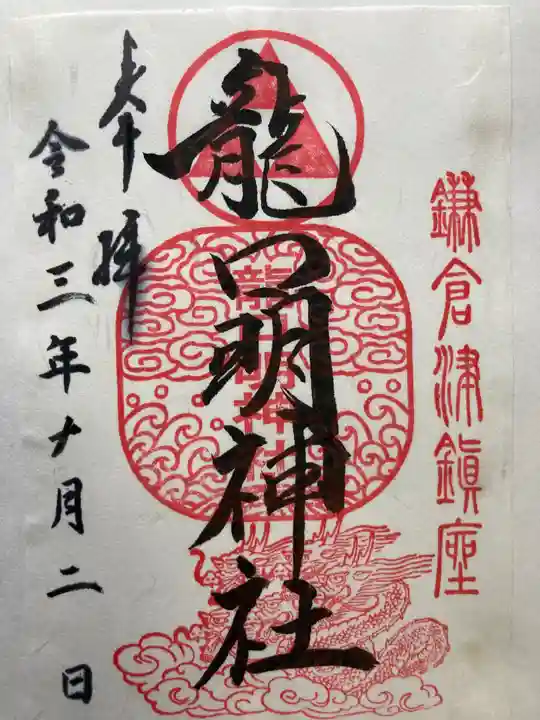 鎌倉津鎮座
龍口明神社
龍口明神社
奉拝
令和三年十月二日